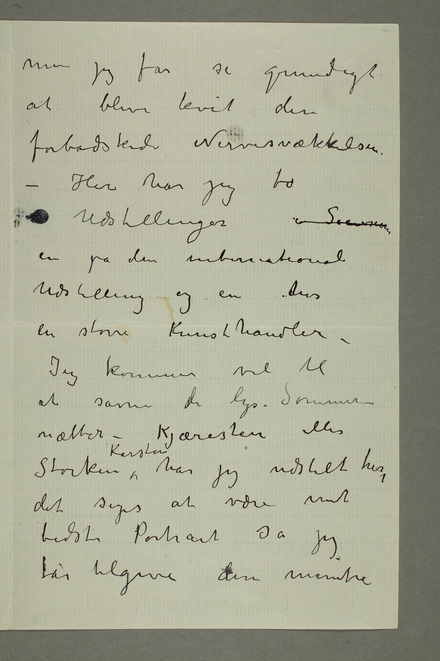 men jeg får se grundigt
at blive kvit den
forbadskede Nervesvækkelsen.
– Her har jeg to
Udstillinger
en på den international
Udstilling og en hos
en større Kunsthandler –
Jeg kommer vel til
at savne de lyse Sommer
nætter – Kjæresten eller
Karsten
Storken, har jeg udstilt her,
det siges at være mit
bedste Portræt så jeg
får tilgive den mindre